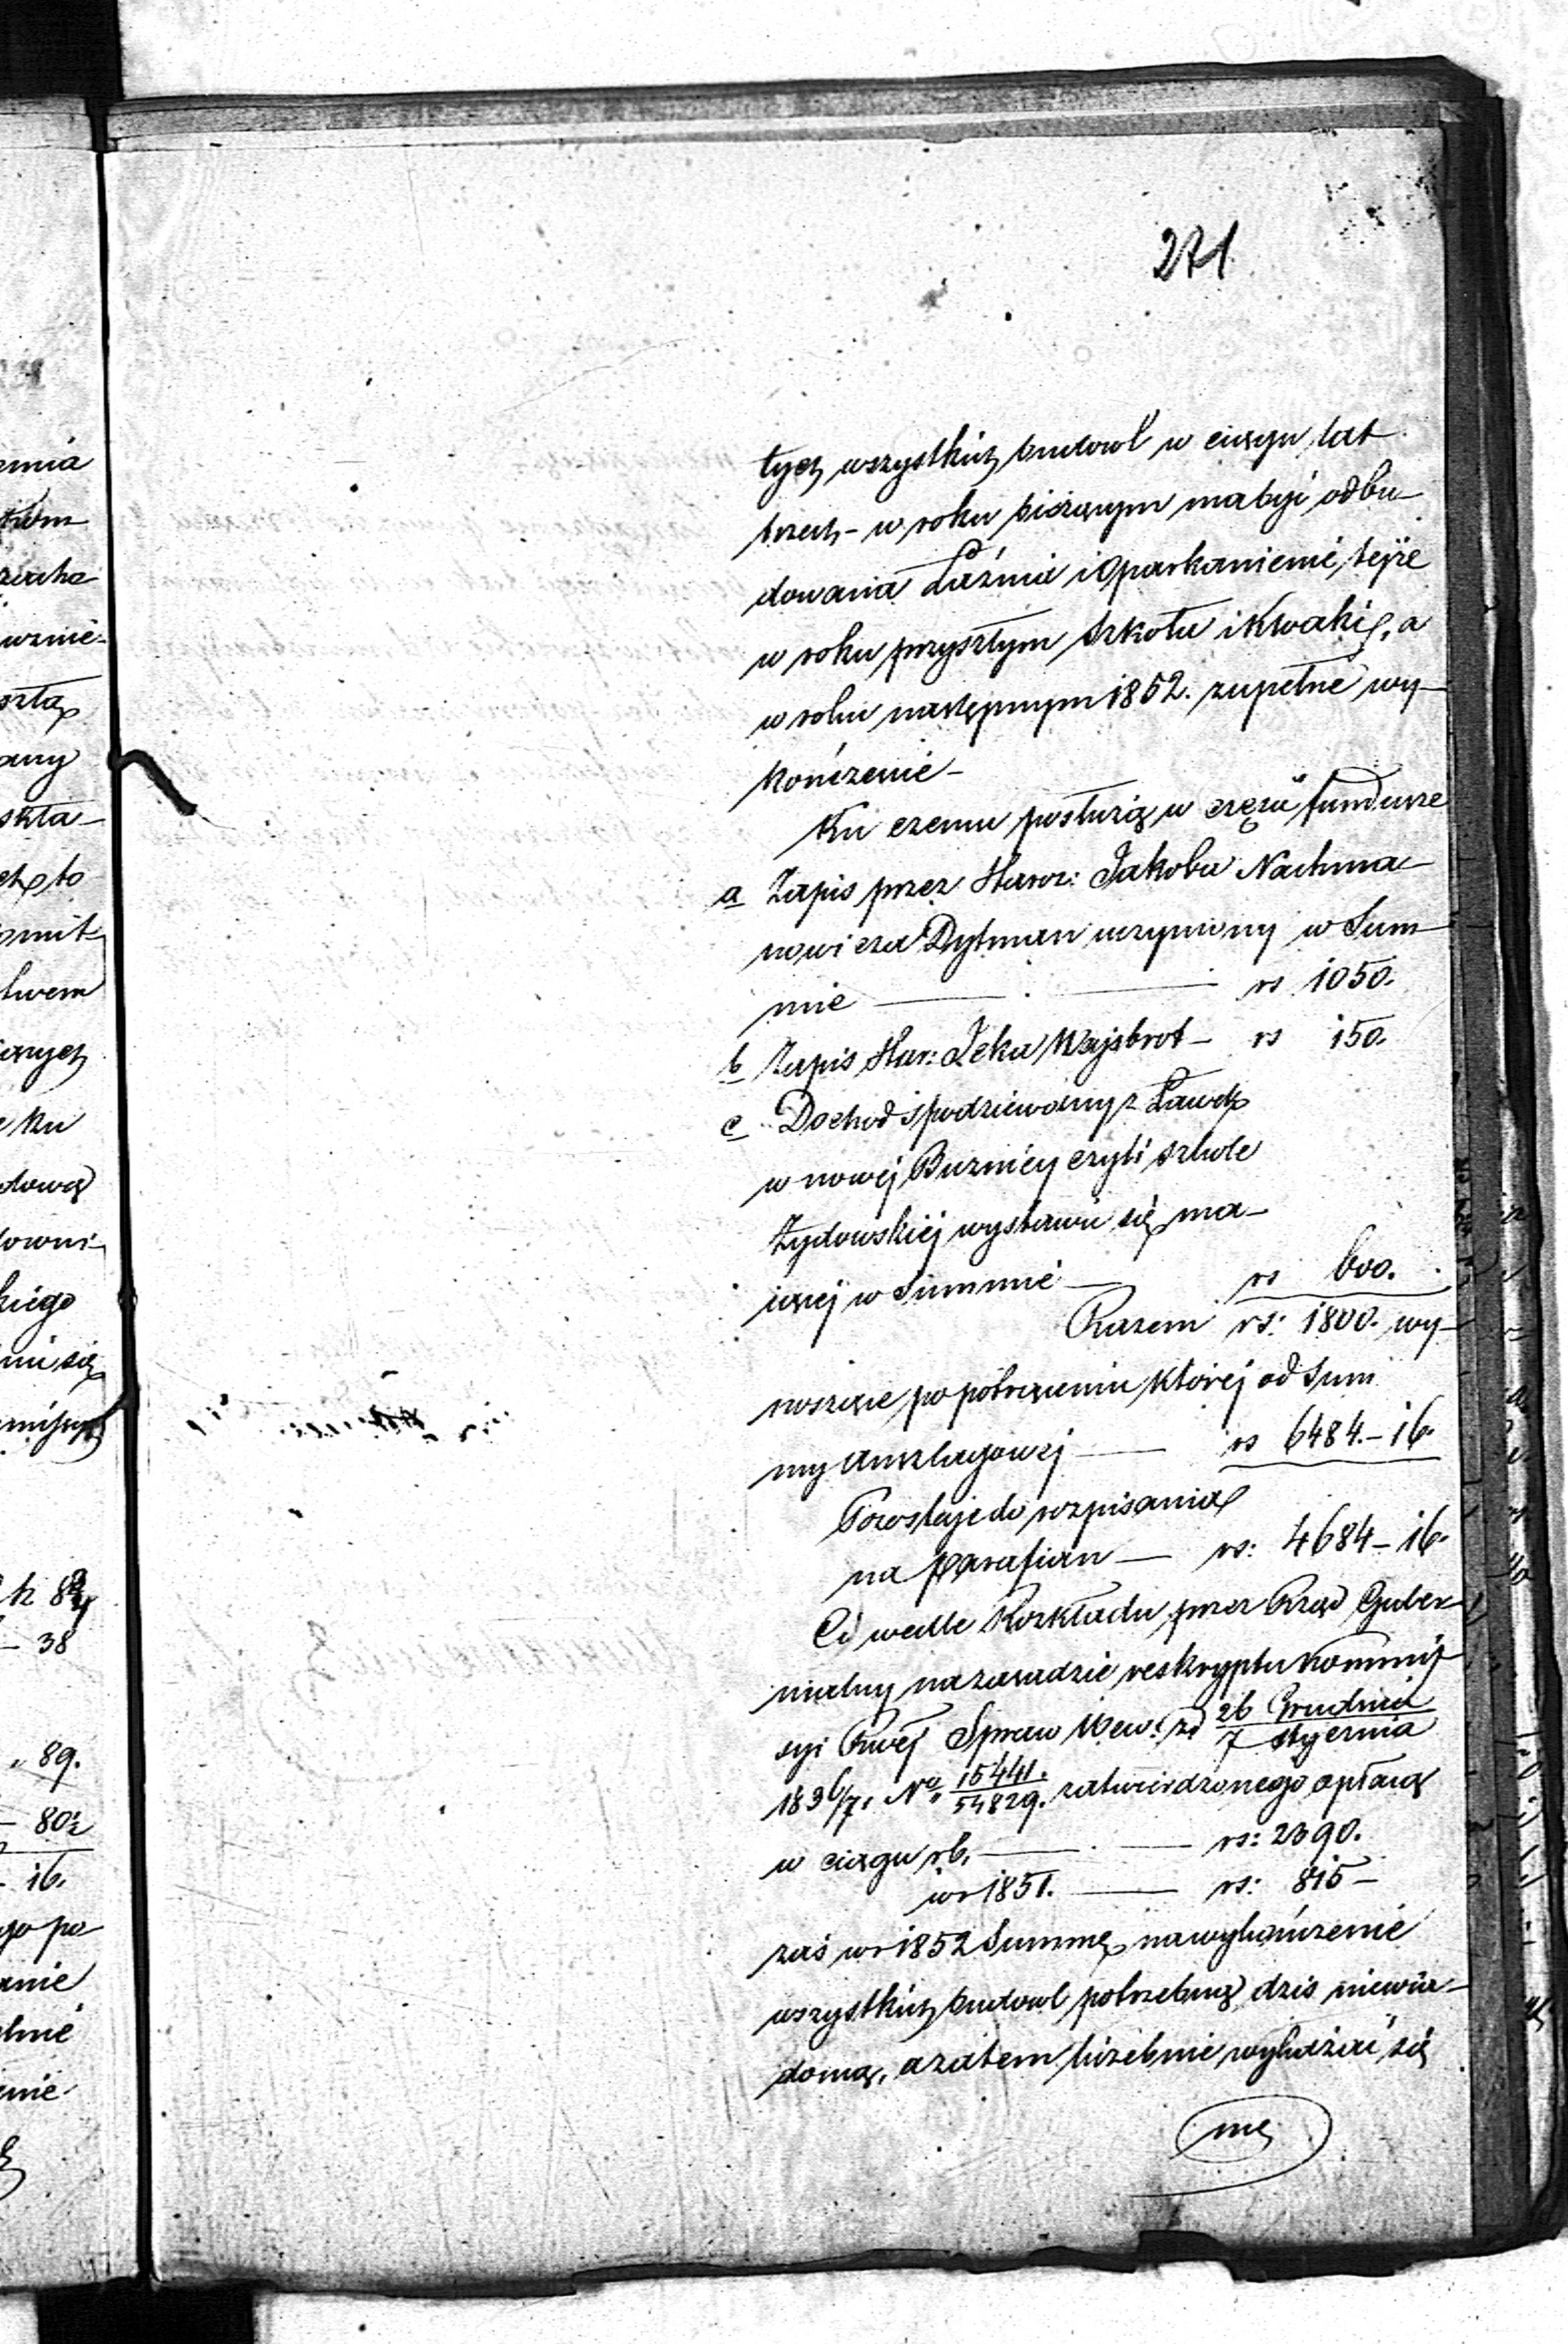 271
tych wszystkich budowl w ciągu lat
trzech - w roku bieżącym ma być odbu-
dowana Łaźnia i oparkanienie tejże
w roku przyszłym Szkoła i Kloaki, a
w roku następnym 1852. zupełne wy-
kończenie -
Ku czemu posłużą w części fundusze
a Zapis przez Staroz: Jakoba Nachma-
nowicza Dytman uczyniony w Sum-
mie — . — rs 1050.
b Zapis Star: Leka Wajsbrot - rs 150.
c Dochod spodziewany z Ławek
w nowej Buznicy czyli szkole
Żydowskiej wystawić się ma-
iącej w Summie — rs 600.
Razem rs: 1800. wy-
noszące po potrąceniu której od Sum
my Anszlagowej — rs 6484.-16.
Pozostaje do rozpisania
na parafian — rs: 4684-16.
Ci wedle Rozkładu przez Rząd Guber-
nialny na zasadzie reskryptu Kommis-
syi Rwej Spraw Wew: z d 26 Grudnia / 7 Stycznia
1836/7. No 15441. / 54829. zatwierdzonego opłacą
w ciągu rb. — . — rs: 2390.
w r 1851. — rs: 815 -
zaś w r 1852 Summę na wykończenie
wszystkich budowl potrzebną dziś niewia-
domą, a zatem liczebnie wykazać się